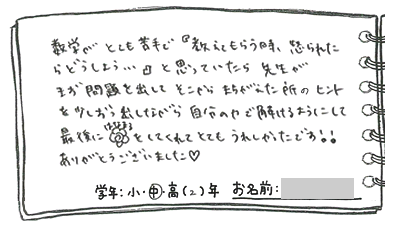 数学がとても苦手で『教えてもらう時、怒られた
らどうしよう…』と思っていたら先生が
まず問題を出してそこからまちがえた所のヒント
を少しずつ出しながら自分の力で解けるようにして
最後に はなまる をしてくれてとてもうれしかったです!!
ありがとうございました♡
学年:小・中・高(2)年 お名前: